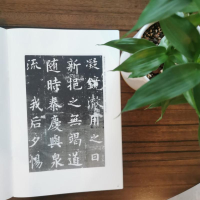 凝鏡澈用之日
新挹之無竭道
隨時泰慶與泉
流 我后夕惕